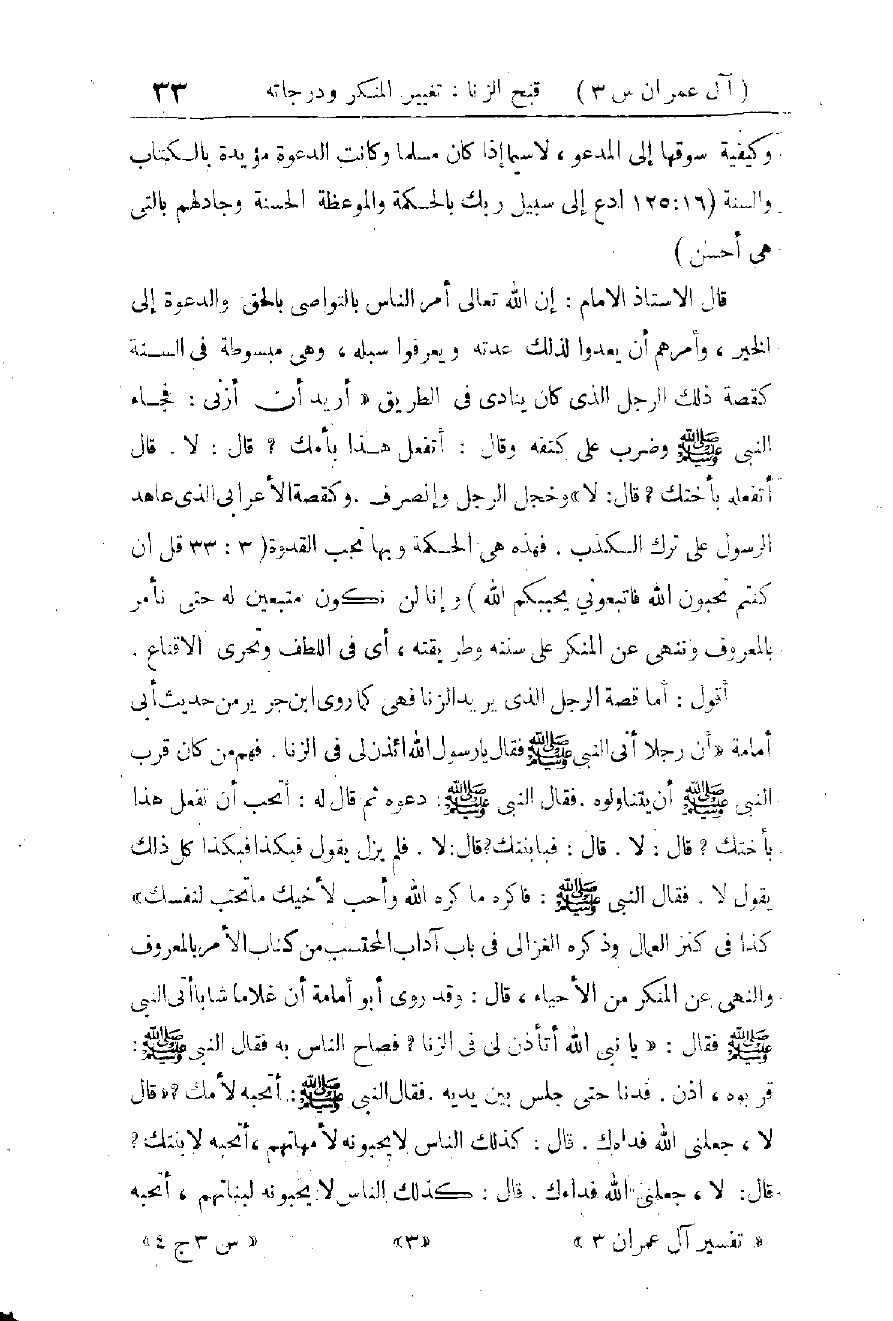 ( آل عمران س ٣ ) قبح الزنا : تغيير المنكر ودرجاته ٣٣
وكيفية سوقها إلى المدعو ، لاسيما إذا كان مسلما وكانت الدعوة مؤيدة بالكتاب
والسنة (١٢٥:١٦ ادع إلى سبيل ربك بالحكمة والموعظة الحسنة وجادلهم بالتى
هى أحسن )
قال الاستاذ الامام : إن الله تعالى أمر الناس بالتواصى بالحق والدعوة إلى
الخير ، وأمرهم أن يعدوا لذلك عدته ويعرفوا سبله ، وهى مبسوطة فى السنة
كقصة ذلك الرجل الذى كان ينادى فى الطريق « أريد أن أزنى : فجاء
النبى ﷺ وضرب على كتفه وقال : أتفعل هذا بأمك ? قال : لا . قال
أتفعله بأختك ? قال: لا» وخجل الرجل وإنصرف . وكقصة الأعرابى الذى عاهد
الرسول على ترك الكذب . فهذه هى الحكمة وبها تجب القدوة( ٣ : ٣٣ قل ان
كنتم تحبون الله فاتبعونى يحببكم الله ) وإنا لن نكون متبعين له حتى نأمر
بالمعروف وننهى عن المنكر على سنته وطريقته ، أى فى اللطف وتحرى الاقناع .
أقول : أما قصة الرجل الذى يريد الزنا فهى كما روى ابن جرير من حديث أبى
أمامة « أن رجلا أتى النبى ﷺ فقال يارسول الله ائذن لى فى الزنا . فهم من كان قرب
النبى ﷺ أن يتناولوه . فقال النبى ﷺ : دعوه ثم قال له : أتحب أن تفعل هذا
بأختك ? قال : لا . قال : فبابنتك? قال: لا . فلم يزل يقول فبكذا فبكذا كل ذلك
يقول لا . فقال النبى ﷺ : فاكره ما كره الله وأحب لأخيك ماتحب لنفسك»
كذا فى كنز العمال وذكره الغزالى فى باب آداب المحتسب من كتاب الأمر بالمعروف
والنهى عن المنكر من الأحياء ، قال : وقد روى أبو أمامة أن غلاما شابا أتى النبى
ﷺ فقال : « يا نبى الله أتأذن لى فى الزنا ? فصاح الناس به فقال النبى ﷺ :
قربوه ، اذن . فدنا حتى جلس بين يديه . فقال النبى ﷺ : أتحبه لأمك ?» قال
لا ، جعلنى الله فداءك . قال : كذلك الناس لايحبونه لأمهاتهم ، أتحبه لابنتك ?
قال: لا ، جعلنى الله فداءك . قال : كذلك الناس لايحبونه لبناتهم ، أتحبه
« تفسير آل عمران ٣ » «٣» « س ٣ ج ٤ »